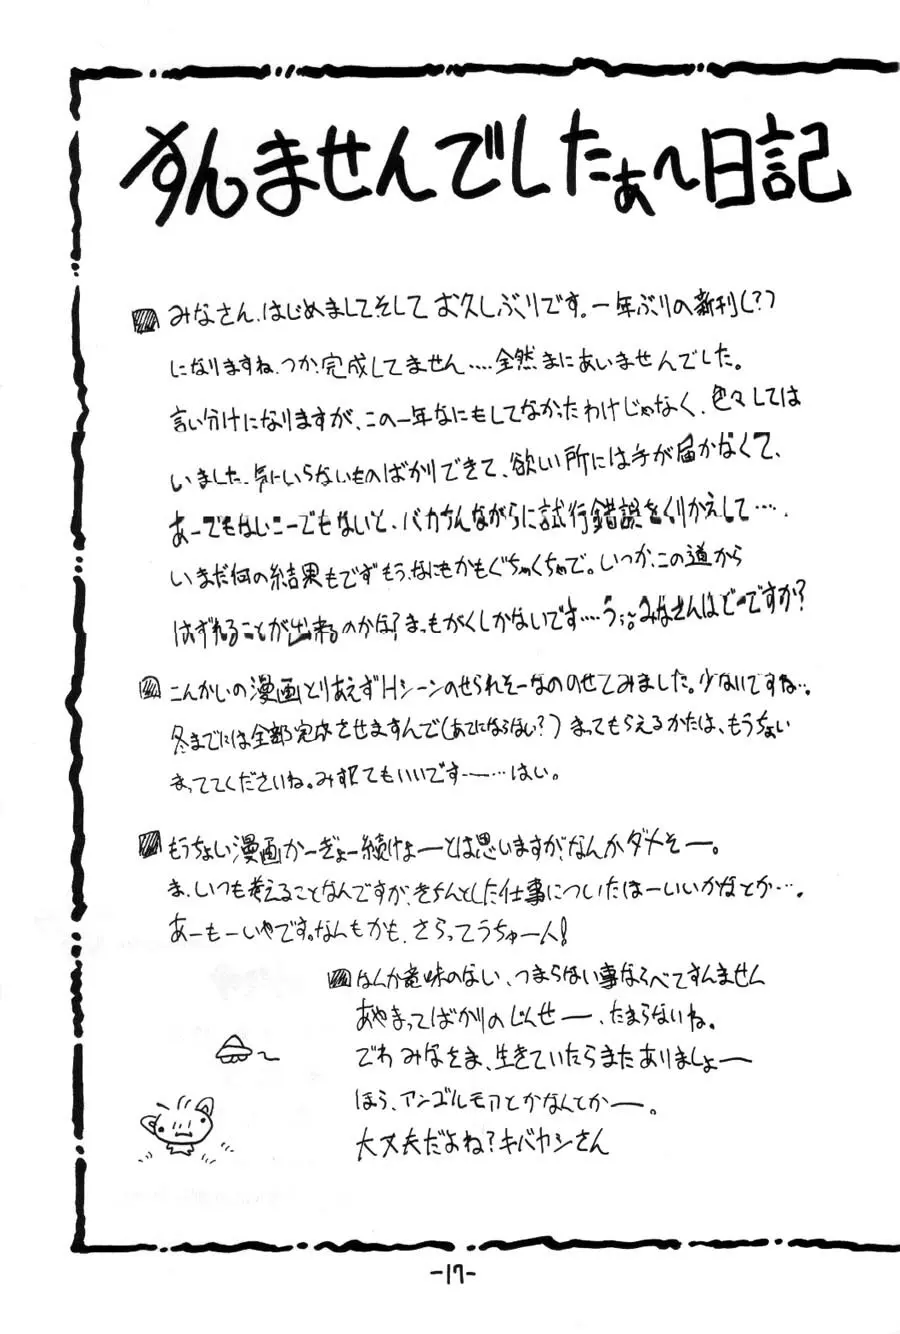 すんませんでしたぁ〜日記
みなさん、はじめましてそしてお久しぶりです。一年ぶりの新刊(?)
になりますね、つか完成してません....全然まにあいませんでした。
言い分けになりますが、この一年なにもしてなかったわけじゃなく、色々しては
いました、気にいらないものばかりできて、欲しい所には手が届かなくて、
あーでもないこーでもないと、バカちんながらに試行錯誤をくりかえして....、
いまだ何の結果もでずもう、なにもかもぐちゃくちゃで。いつか、この道から
はずれることが出来るのかな?まっもがくしかないです....う;。みなさんはどーですか?
こんかいの漫画とりあえずHシーンのせられそーなののせてみました。少ないですね..。
冬までには全部完成させますんで(あてにならない?)まってもらえるかたは、もうちょい
まっててくださいね。みすててもいいですー...はい。
もうちょい漫画かーぎょー続けよーとは思いますが、なんかダメそー。
ま、いつも考えることなんですが、きちんとした仕事についたほーいいかなとか...。
あーもーいやです。なんもかも、さらってうちゅー人!
なんか意味のない、つまらない事ならべてすんません
あやまってばかりのじんせー、たまらないね。
でわみなさま、生きていたらまたありましょー
ほら、アンゴルモアとかなんとかー。
大丈夫だよね?キバヤシさん
-17-